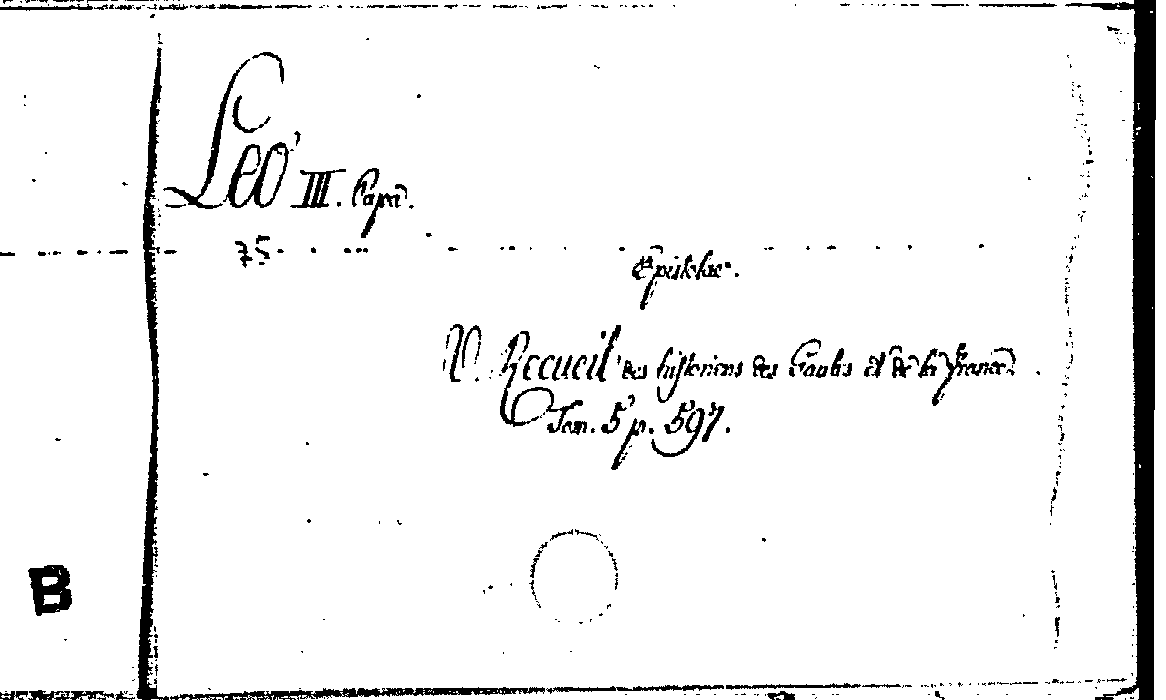 Leo III. Papa.
75.
Epistolae.
V. Recueil des historiens des Gaules et de la France.
Tom. 5 p. 597.
B